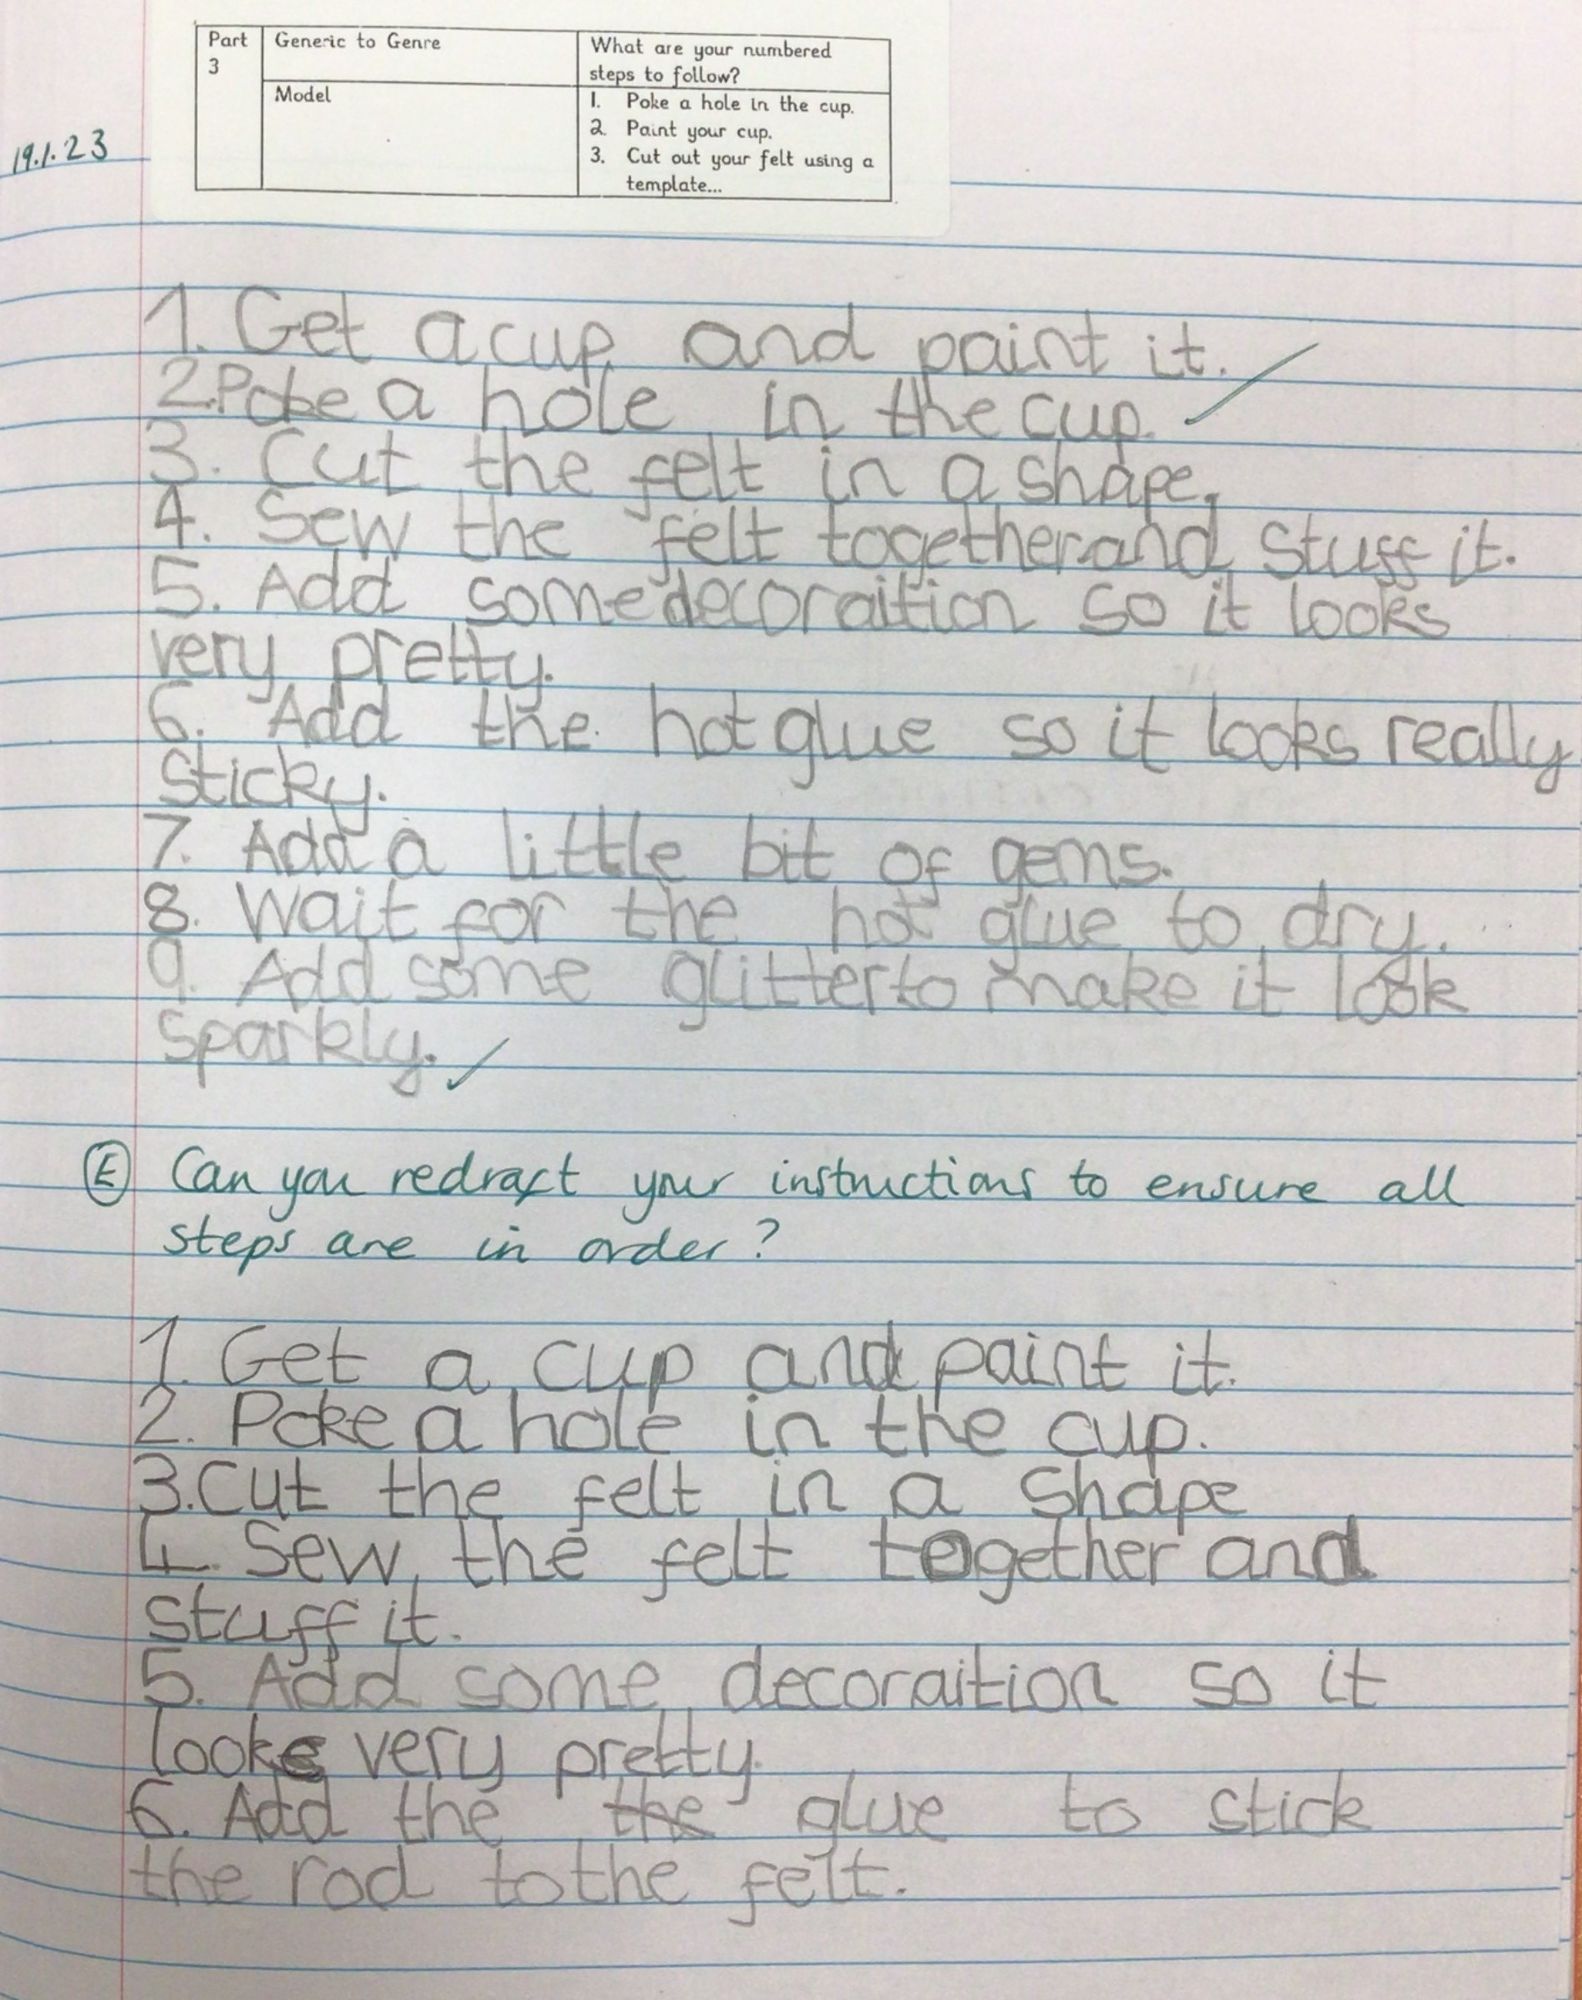 Part 3
Generic to Genre
What are your numbered
steps to follow?
Model
1. Poke a hole in the cup.
2. Paint your cup.
3. Cut out your felt using a
template...
19.1.23
1. Get a cup and paint it.
2. Poke a hole in the cup.
3. Cut the felt in a shape.
4. Sew the felt together and stuff it.
5. Add some decoraition so it looks
very pretty.
6. Add the hot glue so it looks really
sticky.
7. Add a little bit of gems.
8. Wait for the hot glue to dry.
9. Add some glitter to make it look
sparkly.
E Can you redraft your instructions to ensure all
steps are in order?
1. Get a cup and paint it.
2. Poke a hole in the cup.
3. Cut the felt in a shape
4. Sew the felt together and
stuff it.
5. Add some decoraition so it
looks very pretty.
6. Add the the glue to stick
the rod to the felt.